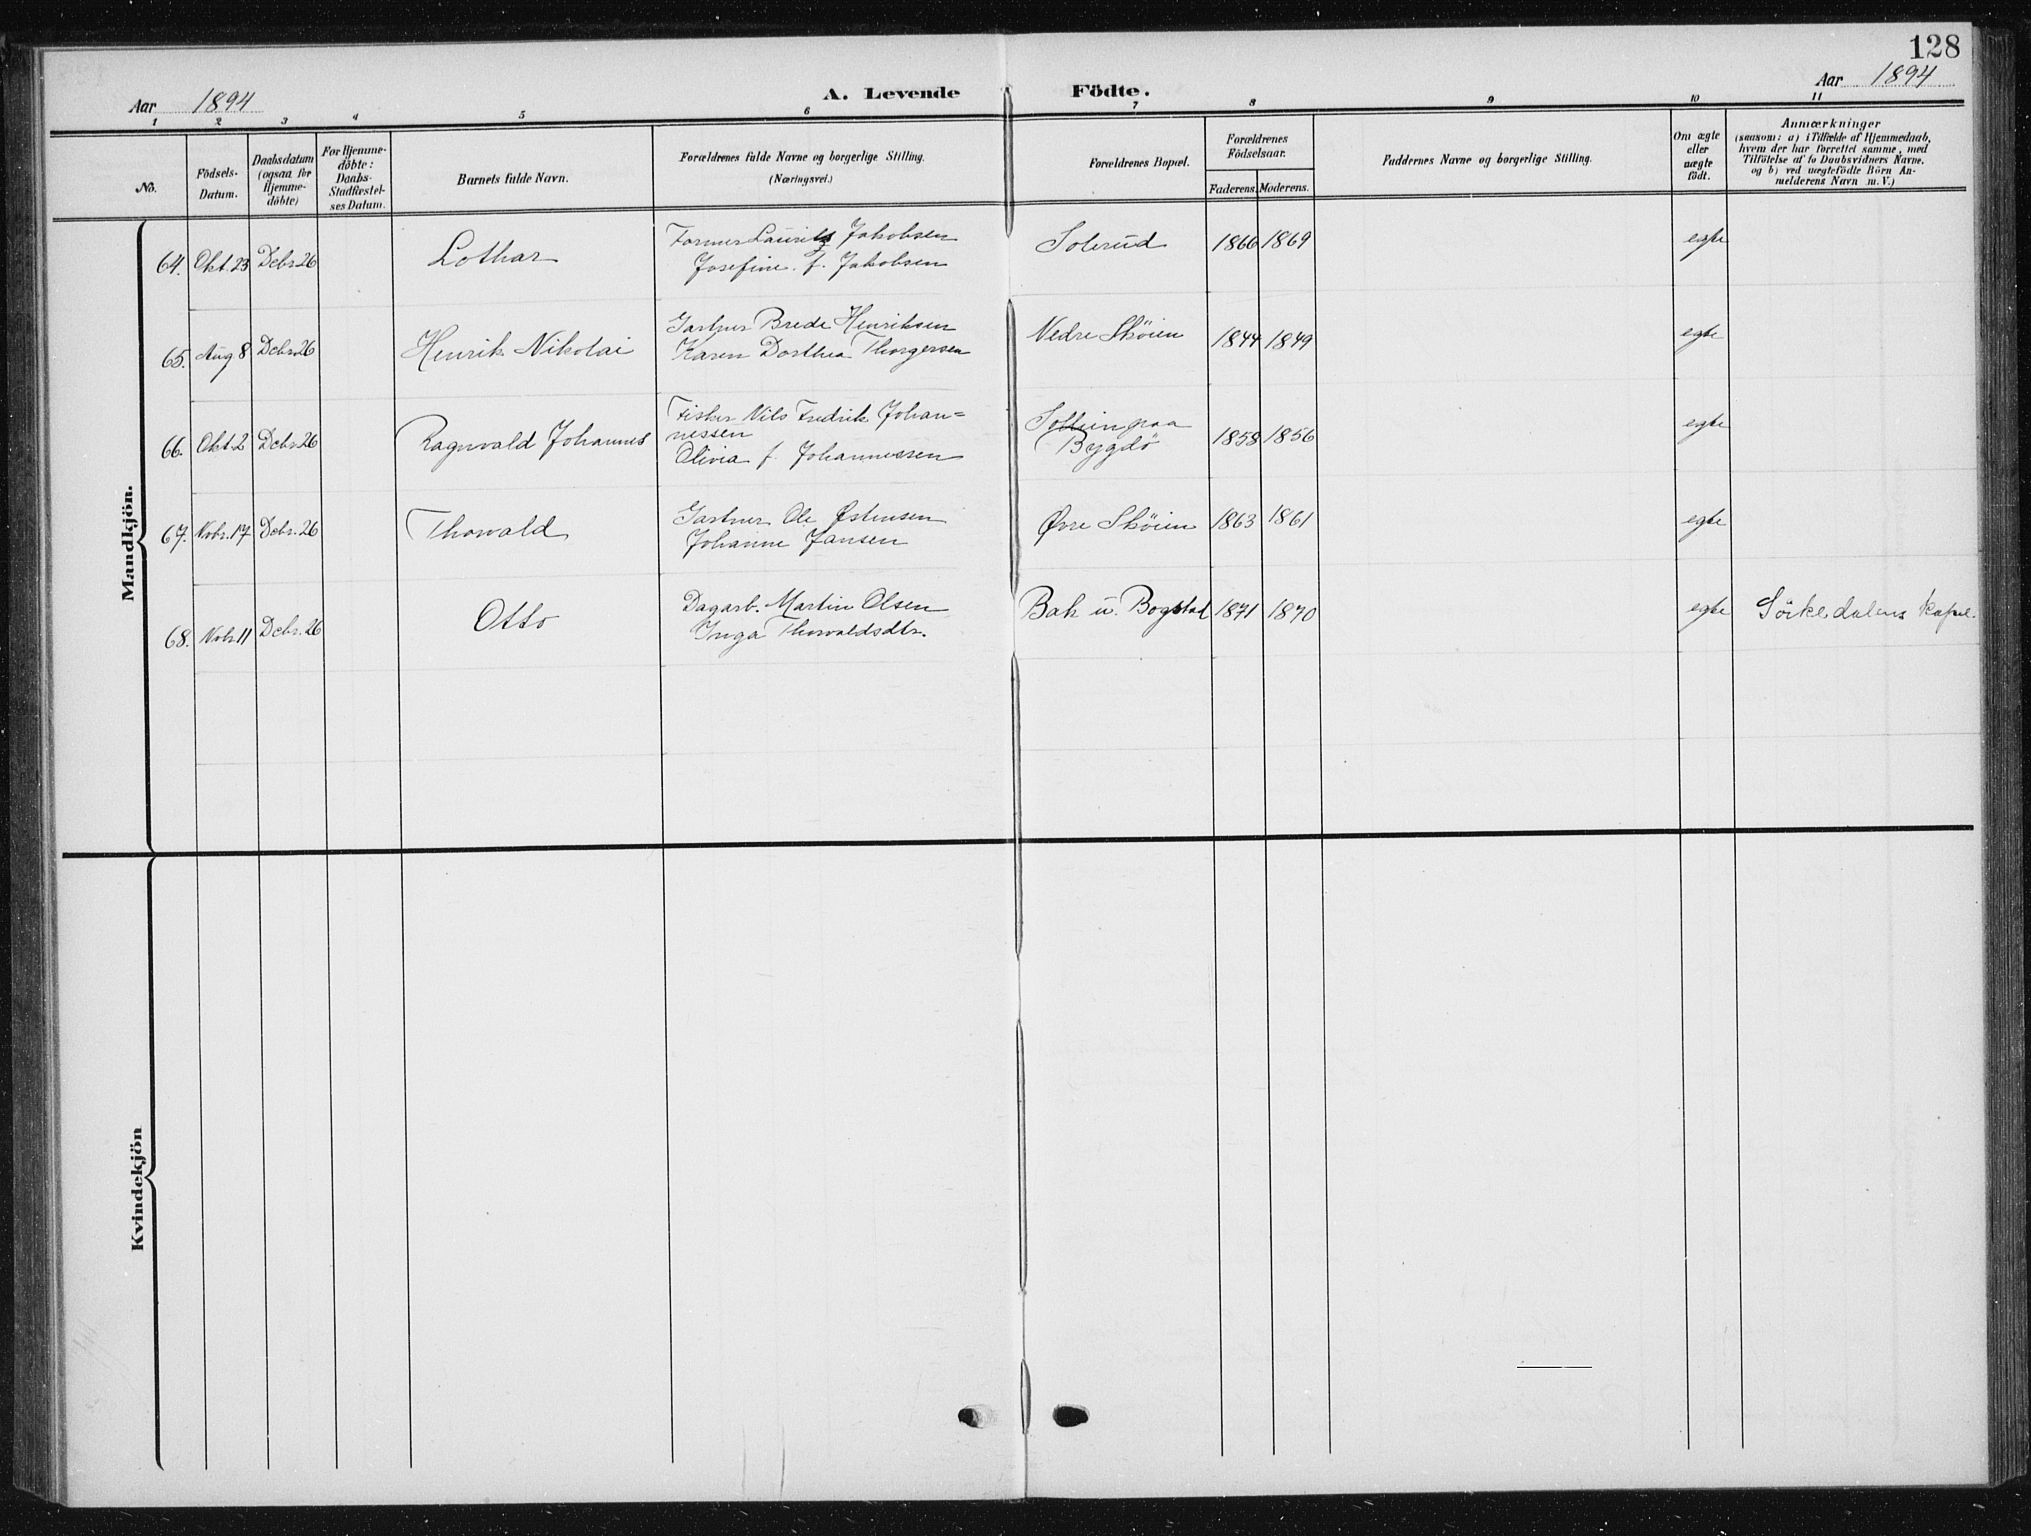 128
Aar 1894
A. Levende Födte.
Aar 1894
1 2 3 4 5 6 7 8 9 10 11
No.
Födsels-
Datum.
Daabsdatum
(ogsaa for
Hjemme-
döbte)
For Hjemme-
döbte:
Daabs-
Stadfæstel-
ses Datum.
Barnets fulde Navn.
Forældrenes fulde Navne og borgerlige Stilling.
(Næringsvei.)
Forældrenes Bopæl.
Forældrenes
Födselsaar.
Faderens. Moderens.
Faddernes Navne og borgerlige Stilling.
Om ægte
eller
uægte
født.
Anmærkninger
(saasom: a) i Tilfælde af Hjemmedaab,
hvem der har forrettet samme, med
Tilföielse af to Daabsvidners Navne.
og b) ved uægtefödte Börn An-
melderens Navn m. V.)
Mandkjön.
64. Okt. 23 Debr. 26 Lothar
Former Laurits Jakobsen
Josefine f. Jakobsen
Solerud 1866 1869 egte
65. Aug 8 Debr. 26 Henrik Nikolai
Gartner Brede Henriksen
Karen Dorthea Thorgersen
Nedre Sköien 1844 1849 egte
66. Okt. 2 Debr. 26 Ragnvald Johannes
Fisker Nils Fredrik Johan=
nessen
Olivia f. Johannessen
Bygdö 1858 1856 egte
67. Nobr. 17 Debr. 26 Thorvald
Gartner Ole Østensen
Johanne Jansen
Øvre Sköien 1863 1861 egte
68. Nobr. 11 Debr. 26 Otto
Dagarb. Martin Olsen
Inga Thorvaldsdtr.
Bak u. Bogstad 1871 1870 egte Sörkedalens Kapel.
Kvindekjön